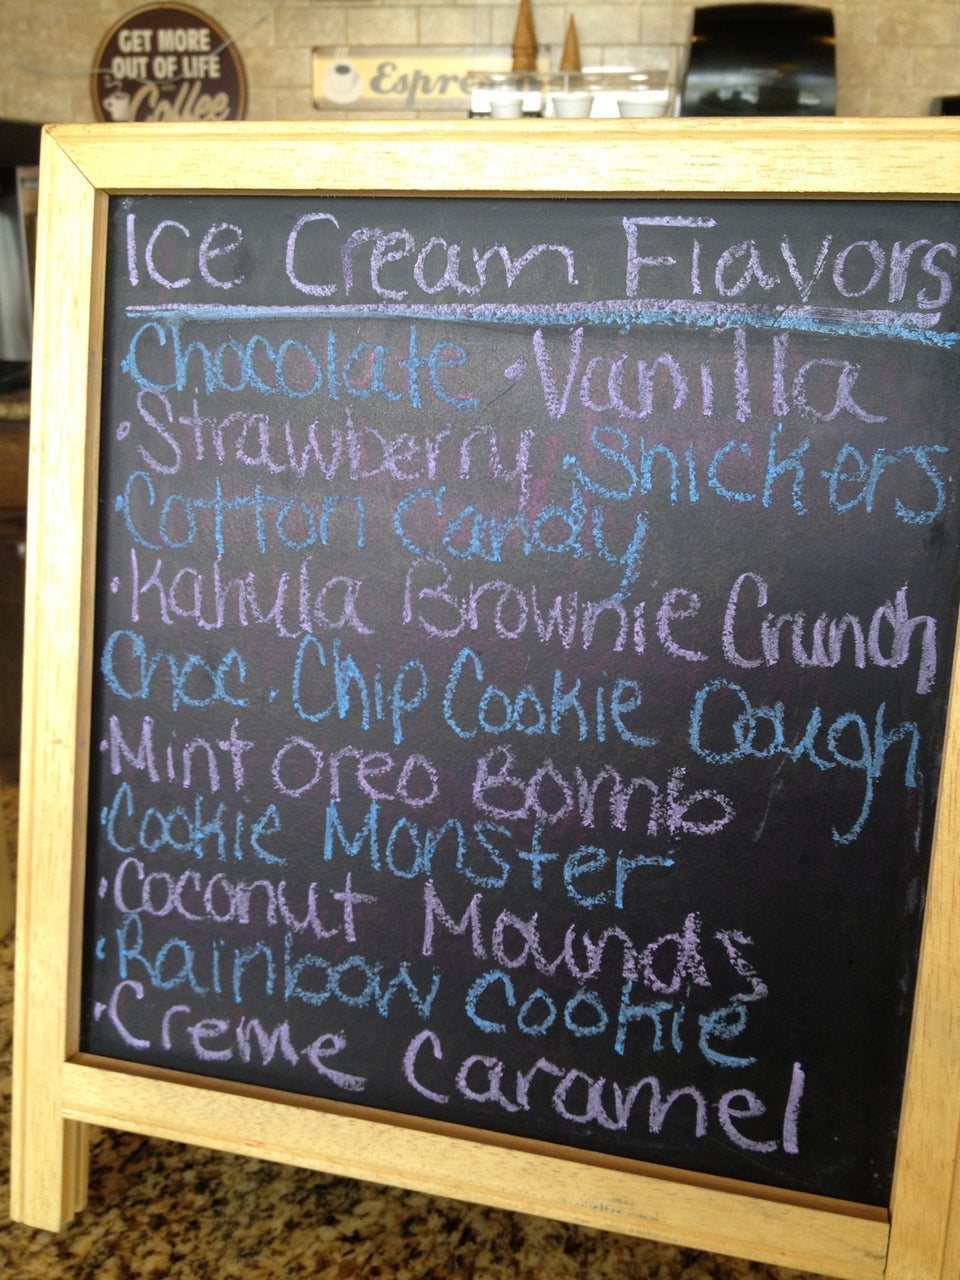 GET MORE
OUT OF LIFE
Coffee
Ice Cream Flavors
·Chocolate ·Vanilla
·Strawberry ·Snickers
·Cotton Candy
·Kahula Brownie Crunch
·Choc. Chip Cookie Dough
·Mint Oreo Bomb
·Cookie Monster
·Coconut Mounds
·Rainbow Cookie
·Creme Caramel